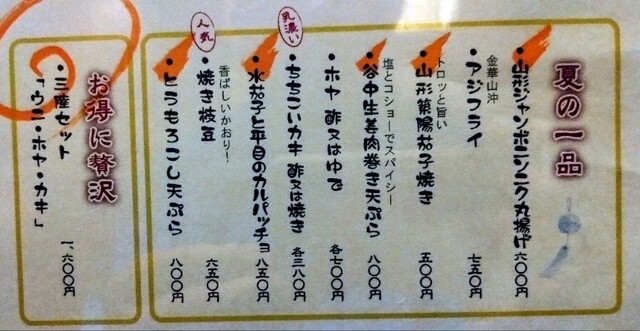 夏の一品
山形ジャンボニンニク丸揚げ 六〇〇円
金華山沖
アジフライ 七五〇円
トロッと旨い
山形築陽茄子焼き 五〇〇円
塩とコショーでスパイシー
谷中生姜肉巻き天ぷら 八〇〇円
ホヤ 酢又はゆで 各七〇〇円
乳濃い
ちちこいカキ 酢又は焼き 各三八〇円
水茄子と平目のカルパッチョ 八五〇円
人気
香ばしいかおり!
焼き枝豆 六五〇円
とうもろこし天ぷら 八〇〇円
お得に贅沢
・三産セット
「ウニ・ホヤ・カキ」 一、六〇〇円